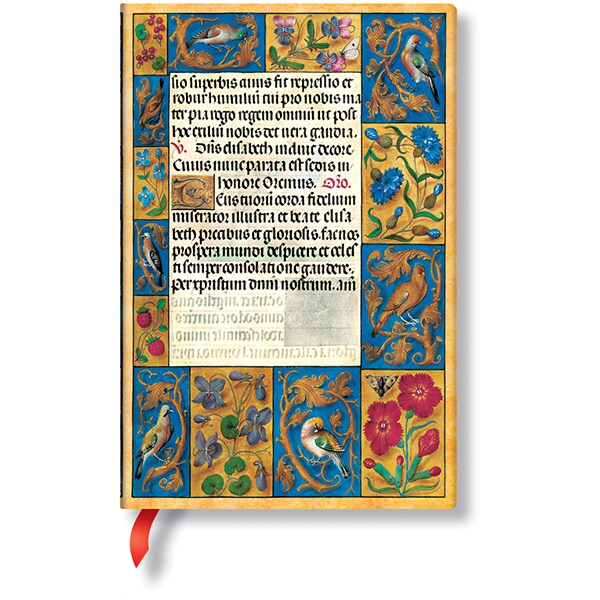 sio superbis cuius fit repressio et
robur humiliū cui pro nobis ma
ter pia rogo regem omniū ut post
hoc exiliū nobis det uera gaudia.
V. Dn̄s elisabeth induit decore.
Cuius nunc parata est sedis in
honore Oremus. Oro.
Deus tuorū corda fidelium
miserator illustra et beate elisa
beth precibus et gloriosis. fac nos
prospera mundi despicere et celes
ti semper consolatione gaudere.
Per xpristum dnm̄ nostrum. Am̄